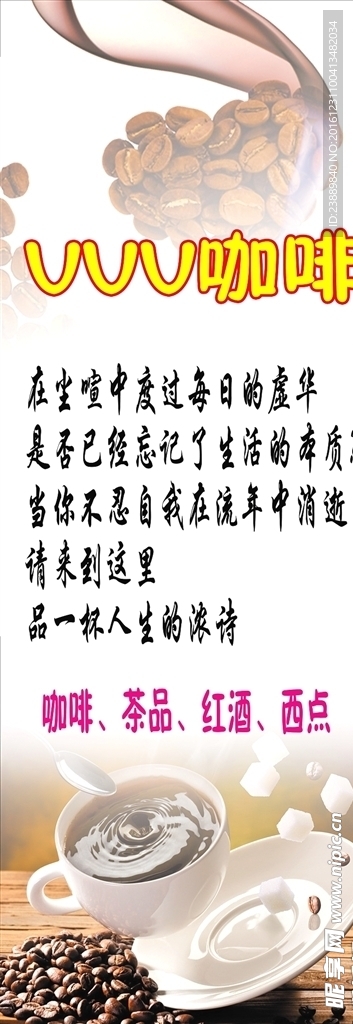 ID:23889840 NO:20161231100413482034
VVV咖啡
在尘喧中度过每日的虚华
是否已经忘记了生活的本质
当你不忍自我在流年中消逝
请来到这里
品一杯人生的浓诗
咖啡、茶品、红酒、西点
昵享网 www.nipic.cn